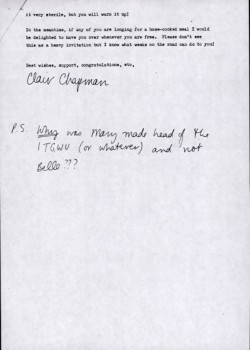 it very sterile, but you will warm it up!
In the meantime, if any of you are longing for a home-cooked meal I would
be delighted to have you over whenever you are free. Please don't see
this as a heavy invitation but I know what weeks on the road can do to you!
Best wishes, support, congratulations, etc,
Clair Chapman
P.S. Why was Mary made head of the
ITGWU (or whatever) and not
Belle???